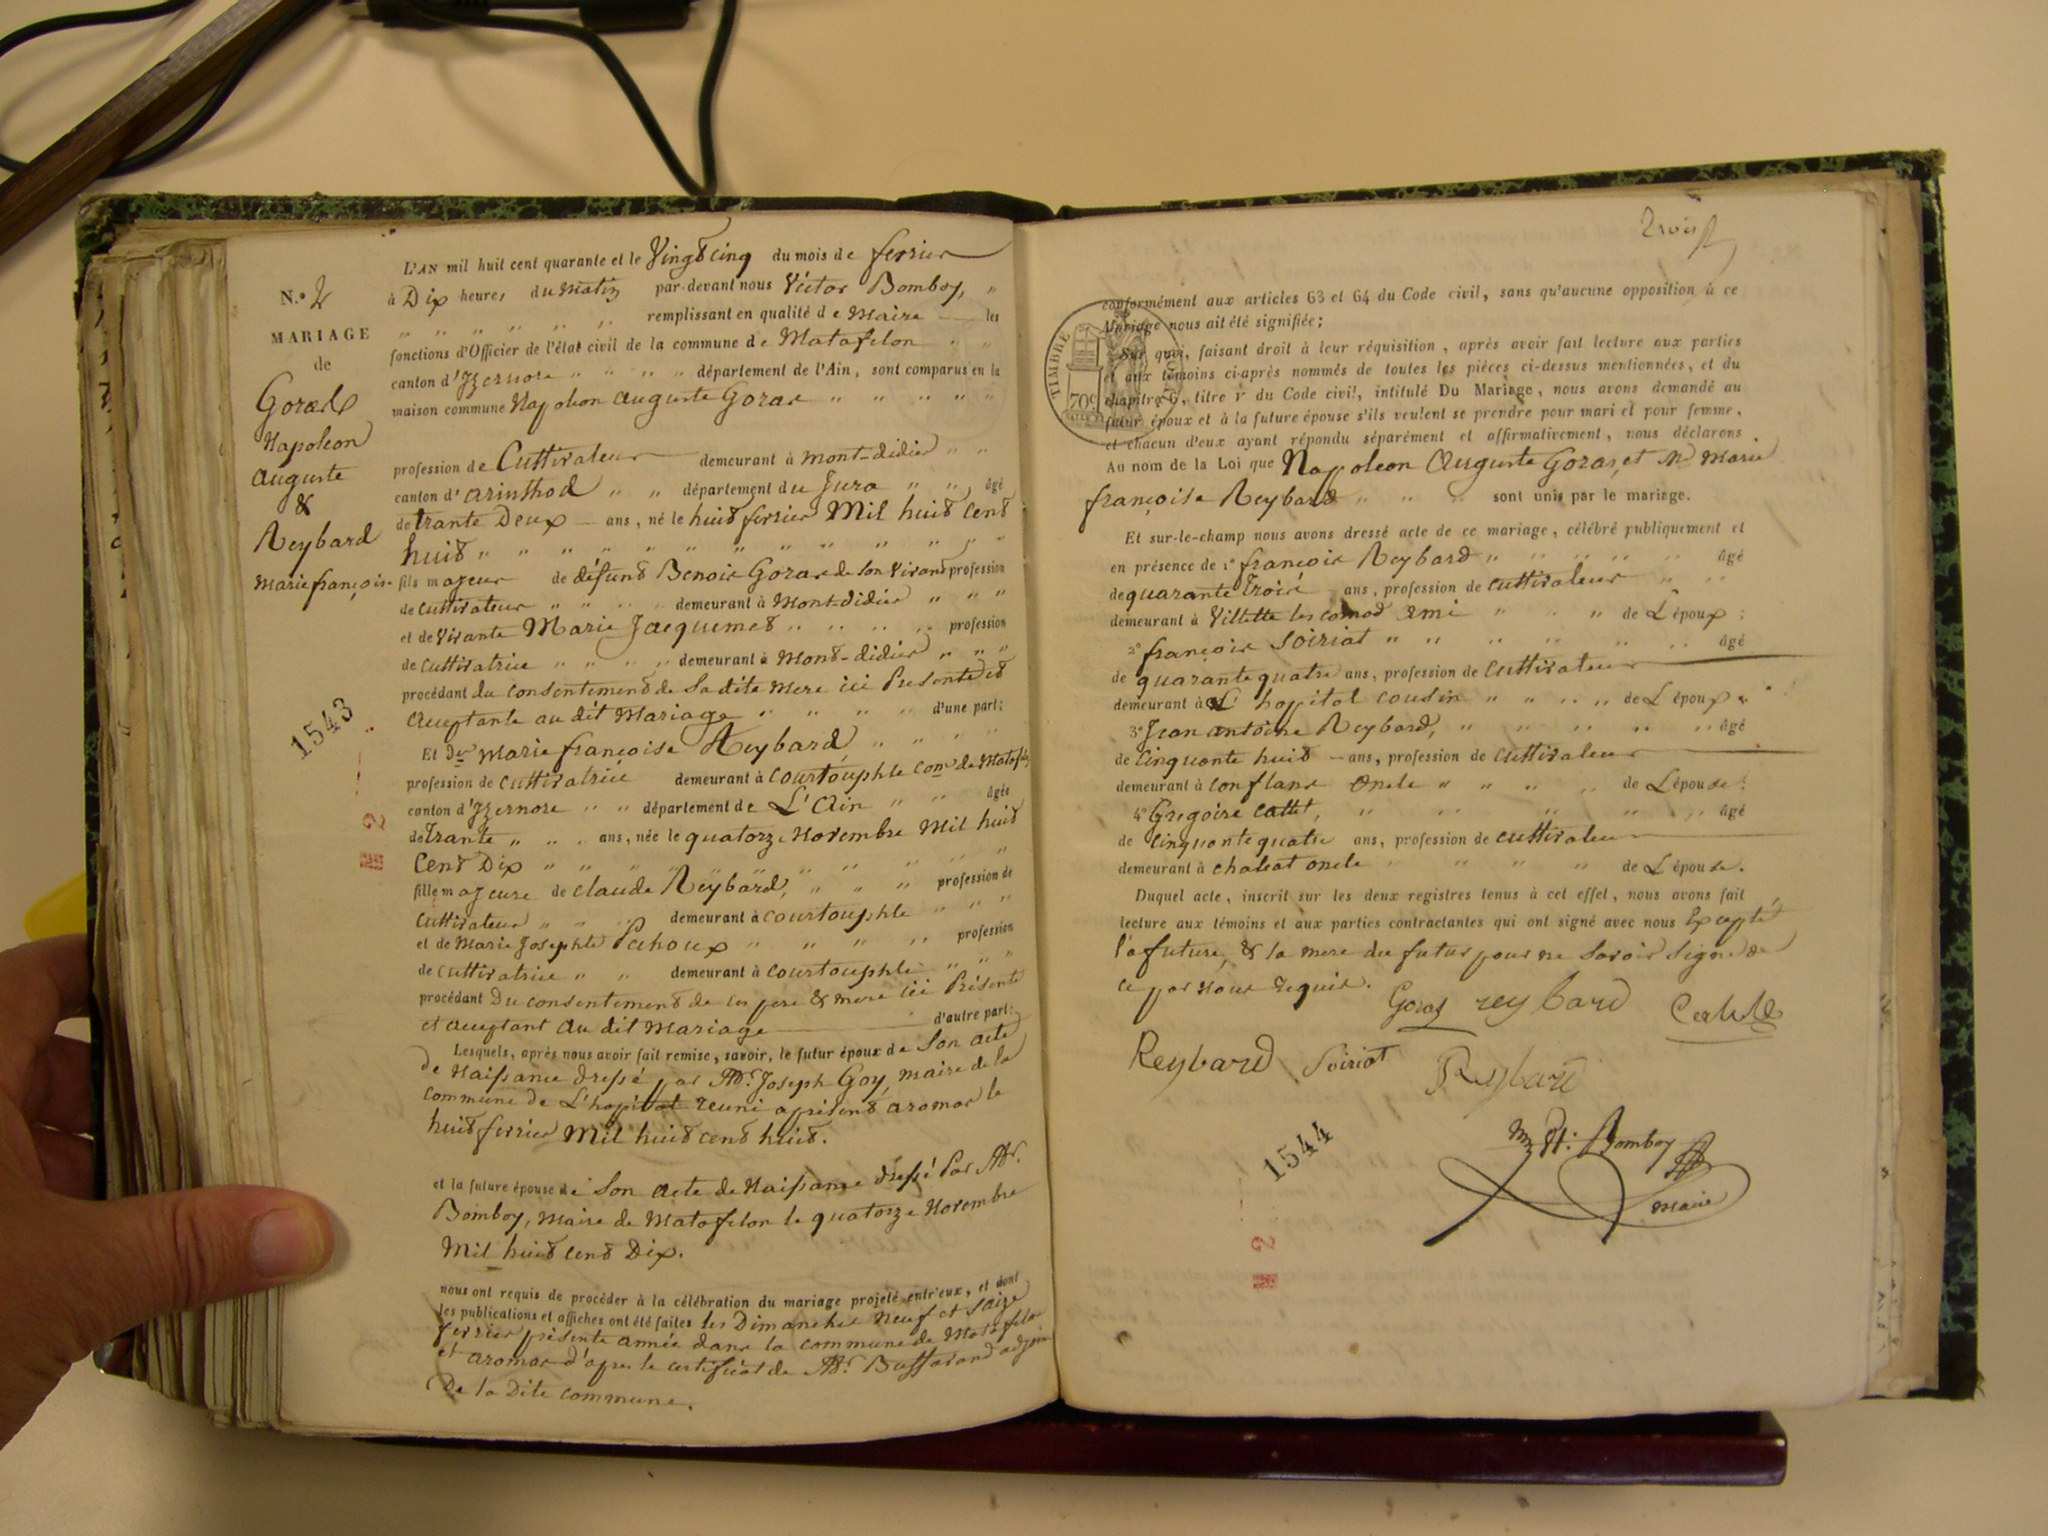 N.º 2
MARIAGE
de
Gorard
Napoleon
Auguste
&
Reybard
Marie françoise
L'AN mil huit cent quarante et le Vingt cinq du mois de ferrier
à Dix heures du Matin par-devant nous Victor Bomboy, "
" " " " " " remplissant en qualité de Maire — les
fonctions d'Officier de l'état civil de la commune de Matafelon " "
canton d'Yzernore " " " " département de l'Ain, sont comparus en la
maison commune Napoleon Auguste Goras " " " " "
profession de Cuttivateur — demeurant à Mont-didier " "
canton d' arinthod " " département du Jura " " âgé
de trante Deux — ans, né le huit ferrier Mil huit Cent
huit " " " " " " " " " " " "
fils majeur de défunt Benoir Goras de Son Vivant profession
de cuttivateur " " " " demeurant à Mont-didier " " "
et de Vivante Marie Jacquemet " " " " profession
de cuttivatrice " " " " demeurant à Mont-didier " " "
procédant du consentement de Sa dite Mere ici Presente et
acceptante au dit Mariage " " " " d'une part;
Et Dlle Marie françoise Reybard " " " "
profession de cuttivatrice demeurant à Courtouphle Com. de Matafelon
canton d'Yzernore " " département de L'Ain " " âgée
de trante " " " ans, née le quatorze Novembre Mil huit
Cent Dix " " " " " " " " " "
fille majeure de claude Reybard, " " " profession de
Cuttivateur " " " " demeurant à courtouphle " " "
et de Marie Josephte Pahoux " " " " profession
de cuttivatrice " " demeurant à courtouphle " " "
procédant Du consentement de ces pere & mere ici Présente
et acceptant au dit Mariage — d'autre part;
Lesquels, après nous avoir fait remise, savoir, le futur époux de Son acte
de Naissance dressé par Mr. Joseph Goy, maire de la
commune de L'hopital reuni a présent aromas le
huit ferrier Mil huit cent huit.
et la future épouse de Son acte de Naissance dressé Par Mr.
Bomboy, Maire de Matafelon le quatorze Novembre
Mil huit cent Dix.
nous ont requis de procéder à la célébration du mariage projeté entr'eux, et dont
les publications et affiches ont été faites les Dimanches Neuf et Saize
ferrier présente année dans la commune de Matafelon
et aromas d'apres le certificat de Mr. Buffarand adjoin
De la Dite commune.
1543
2
Trois
TIMBRE
70c
conformément aux articles 63 et 64 du Code civil, sans qu'aucune opposition à ce
Mariage nous ait été signifiée;
Sur quoi, faisant droit à leur réquisition, après avoir fait lecture aux parties
et aux témoins ci-après nommés de toutes les pièces ci-dessus mentionnées, et du
chapitre 6, titre v du Code civil, intitulé Du Mariage, nous avons demandé au
futur époux et à la future épouse s'ils veulent se prendre pour mari et pour femme,
et chacun d'eux ayant répondu séparément et affirmativement, nous déclarons
Au nom de la Loi que Napoleon Auguste Goras, et Marie
françoise Reybard " " " sont unis par le mariage.
Et sur-le-champ nous avons dressé acte de ce mariage, célébré publiquement et
en présence de 1º françois Reybard " " " " " âgé
de quarante Troix ans, profession de cuttivateur " "
demeurant à Villette les cornod ami " " " de L'époux;
2º françois Soiriat " " " " " " âgé
de quarante quatre ans, profession de cuttivateur —
demeurant à L' hopital cousin " " " " de L'époux.
3º Jean antoine Reybard, " " " " " " âgé
de Cinquante huit — ans, profession de cuttivateur —
demeurant à Conflans Oncle " " " " de L'épouse;
4º Gregoire Cattet, " " " " " âgé
de Cinquante quatre ans, profession de cuttivateur —
demeurant à chaleat oncle " " " " de L'épouse.
Duquel acte, inscrit sur les deux registres tenus à cet effet, nous avons fait
lecture aux témoins et aux parties contractantes qui ont signé avec nous Excepté
la future, & la mere du futur pour ne Savoir Signé de
ce par Nous requis.
Goras reybard
Reybard Soiriat Reybard
Bomboy
Maire
1544
2